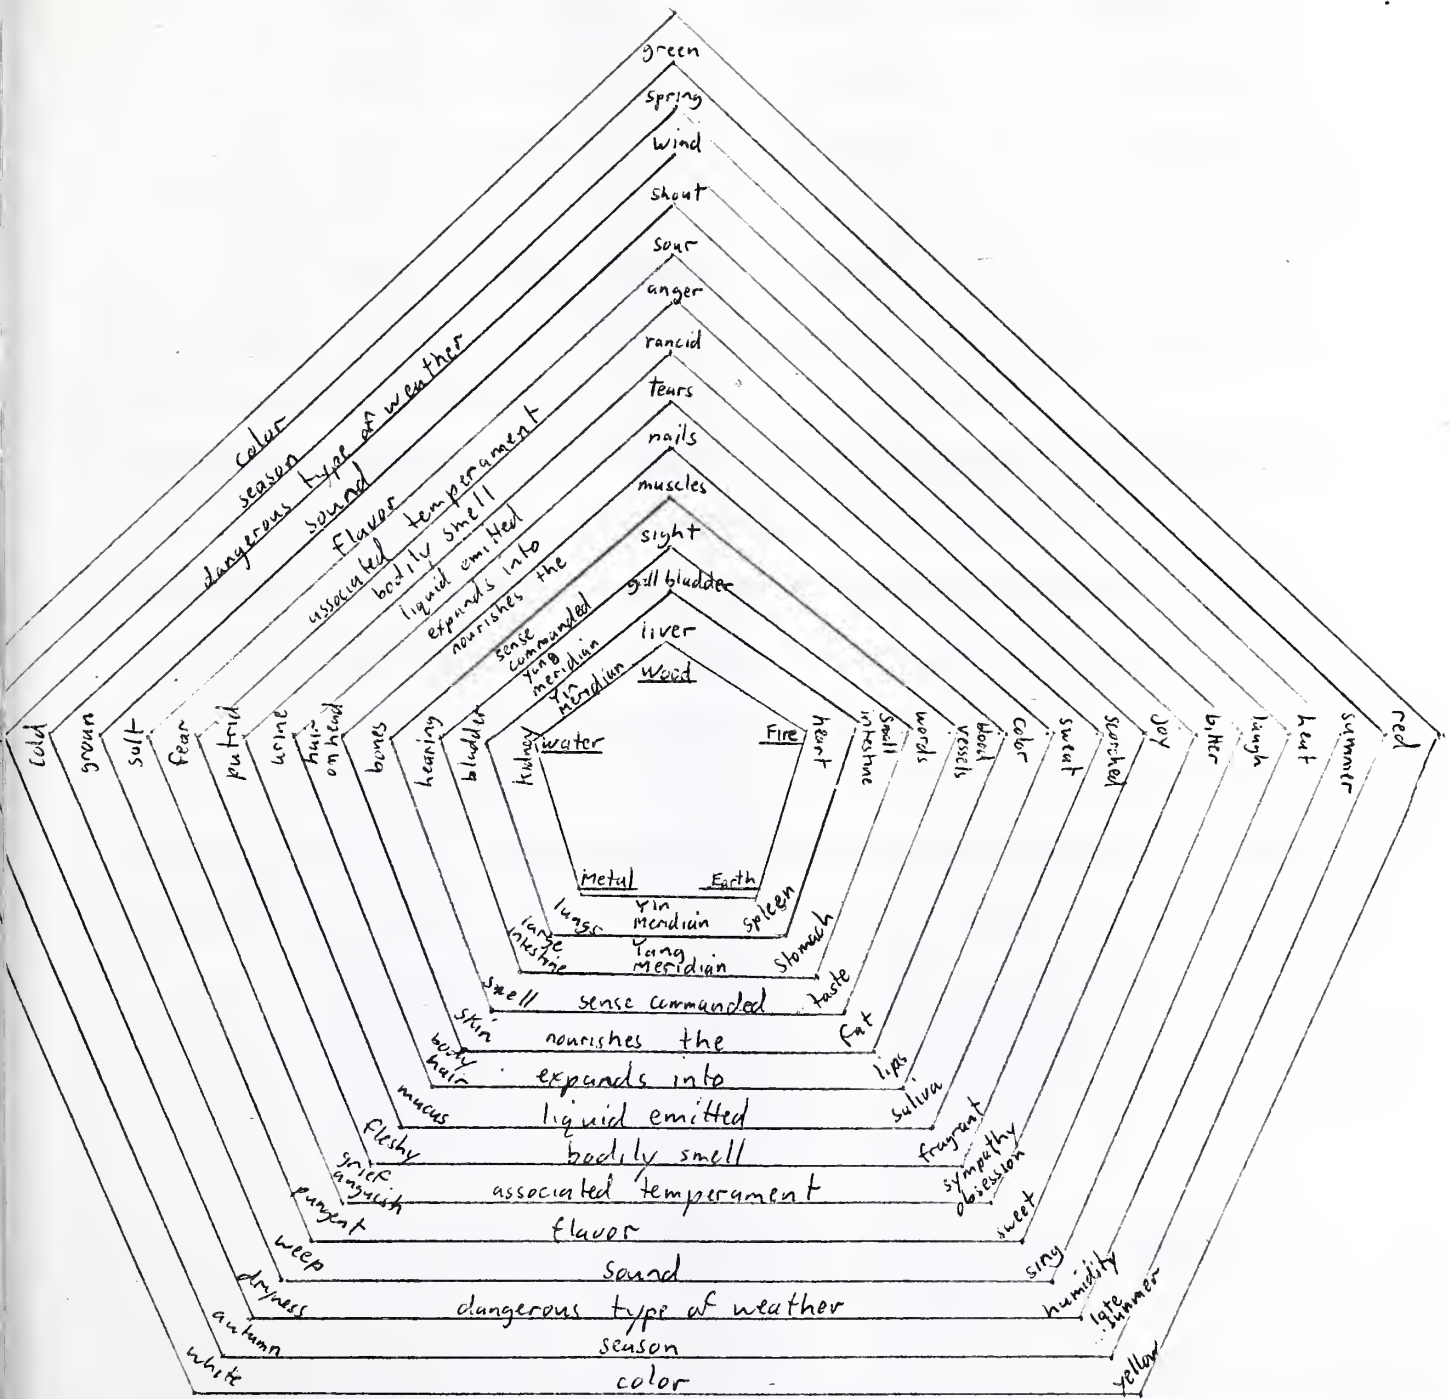 green
spring
wind
shout
sour
anger
rancid
tears
nails
muscles
sight
gall bladder
liver
Wood
color
season
dangerous type of weather
sound
flavor
associated temperament
bodily smell
liquid emitted
expands into
nourishes the
sense
commanded
Yang
meridian
Yin
Meridian
cold
groan
salt
fear
putrid
urine
hair
on head
bones
hearing
bladder
kidney
water
Fire
heart
small
intestine
words
blood
vessels
color
sweat
scorched
Joy
bitter
laugh
heat
summer
red
Metal
Earth
lungs
Yin
Meridian
spleen
large
intestine
Yang
Meridian
stomach
smell
sense commanded
taste
skin
nourishes the
fat
body
hair
expands into
lips
mucus
liquid emitted
saliva
fleshy
bodily smell
fragrant
grief
anguish
associated temperament
sympathy
obsession
pungent
flavor
sweet
weep
sound
sing
dryness
dangerous type of weather
humidity
autumn
season
late
summer
white
color
yellow